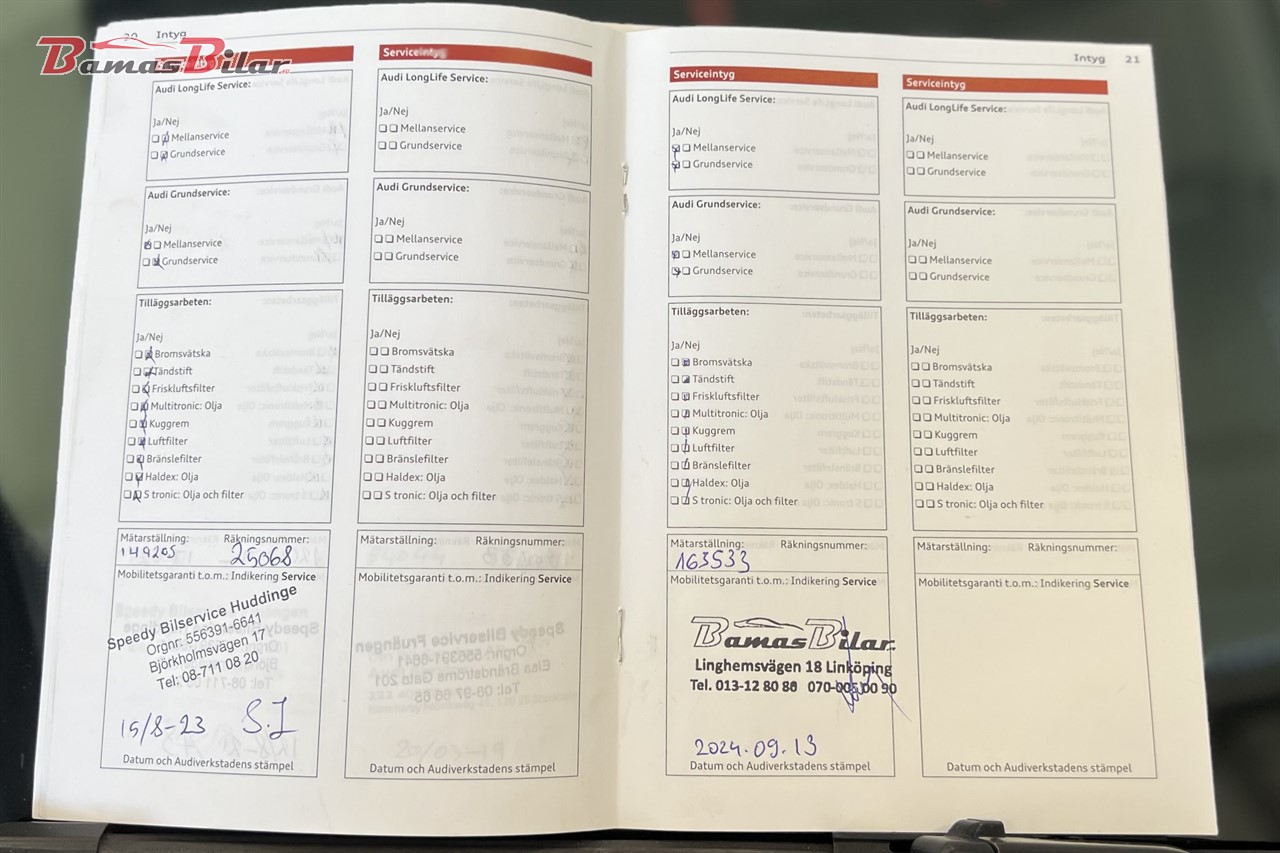 20 Intyg
BamasBilar
Audi LongLife Service:
Ja/Nej
Mellanservice
Grundservice
Audi Grundservice:
Ja/Nej
Mellanservice
Grundservice
Tilläggsarbeten:
Ja/Nej
Bromsvätska
Tändstift
Friskluftsfilter
Multitronic: Olja
Kuggrem
Luftfilter
Bränslefilter
Haldex: Olja
S tronic: Olja och filter
Mätarställning: Räkningsnummer:
149205 25068
Mobilitetsgaranti t.o.m.: Indikering Service
Speedy Bilservice Huddinge
Orgnr: 556391-6641
Björkholmsvägen 17
Tel: 08-711 08 20
15/8-23 S.J
Datum och Audiverkstadens stämpel
Serviceintyg
Audi LongLife Service:
Ja/Nej
Mellanservice
Grundservice
Audi Grundservice:
Ja/Nej
Mellanservice
Grundservice
Tilläggsarbeten:
Ja/Nej
Bromsvätska
Tändstift
Friskluftsfilter
Multitronic: Olja
Kuggrem
Luftfilter
Bränslefilter
Haldex: Olja
S tronic: Olja och filter
Mätarställning: Räkningsnummer:
Mobilitetsgaranti t.o.m.: Indikering Service
Datum och Audiverkstadens stämpel
Intyg 21
Serviceintyg
Audi LongLife Service:
Ja/Nej
Mellanservice
Grundservice
Audi Grundservice:
Ja/Nej
Mellanservice
Grundservice
Tilläggsarbeten:
Ja/Nej
Bromsvätska
Tändstift
Friskluftsfilter
Multitronic: Olja
Kuggrem
Luftfilter
Bränslefilter
Haldex: Olja
S tronic: Olja och filter
Mätarställning: Räkningsnummer:
163533
Mobilitetsgaranti t.o.m.: Indikering Service
BamasBilar
Linghemsvägen 18 Linköping
Tel. 013-12 80 80 070-005 00 90
2024.09.13
Datum och Audiverkstadens stämpel
Serviceintyg
Audi LongLife Service:
Ja/Nej
Mellanservice
Grundservice
Audi Grundservice:
Ja/Nej
Mellanservice
Grundservice
Tilläggsarbeten:
Ja/Nej
Bromsvätska
Tändstift
Friskluftsfilter
Multitronic: Olja
Kuggrem
Luftfilter
Bränslefilter
Haldex: Olja
S tronic: Olja och filter
Mätarställning: Räkningsnummer:
Mobilitetsgaranti t.o.m.: Indikering Service
Datum och Audiverkstadens stämpel